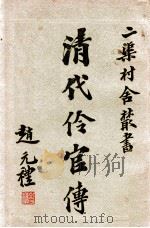 二渠村舍叢書
清代伶官傳
趙元禮
www.duxiu.com